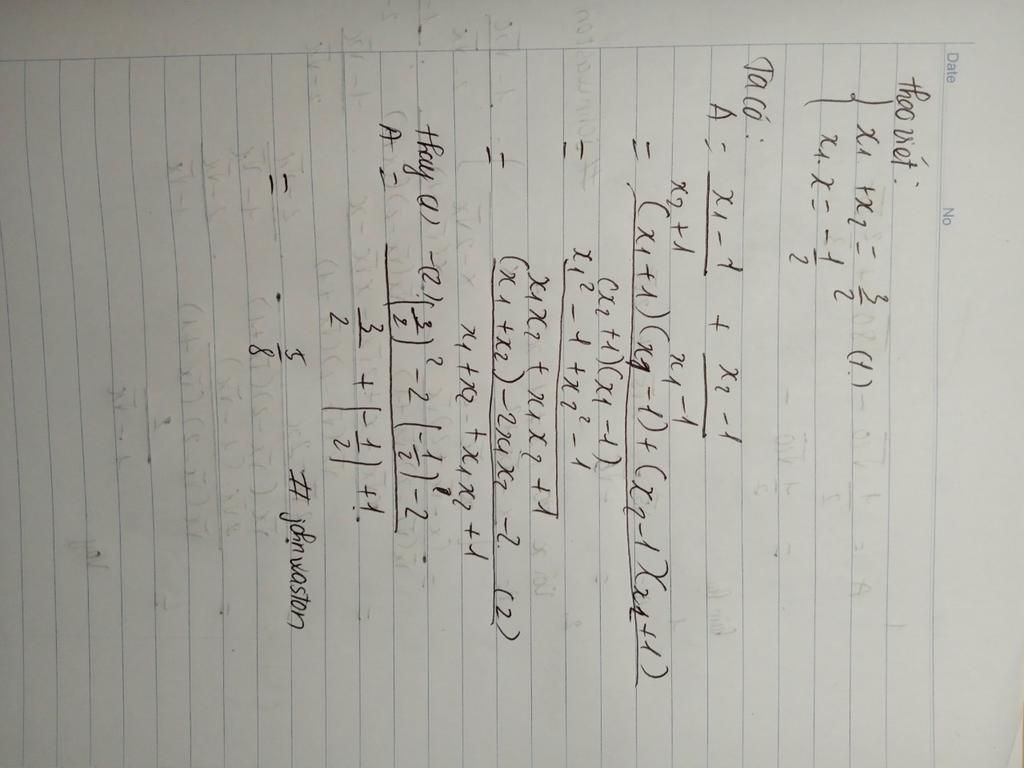 Date No
theo viét:
{ x1 + x2 = 3/2 (1)
{ x1.x = -1/2
Ta có:
A = (x1 - 1)/(x2 + 1) + (x2 - 1)/(x1 - 1)
= ((x1 + 1)(x1 - 1) + (x2 - 1)(x2 + 1))/((x2 + 1)(x1 - 1))
= (x1² - 1 + x2² - 1)/(x1x2 + x1x2 + 1)
= ((x1 + x2) - 2x1x2 - 2)/(x1 + x2 + x1x2 + 1) (2)
thay (1) - (2)
A = ((3/2)² - 2(-1/2) - 2)/(3/2 + (-1/2) + 1)
= 5/8
# johnwaston